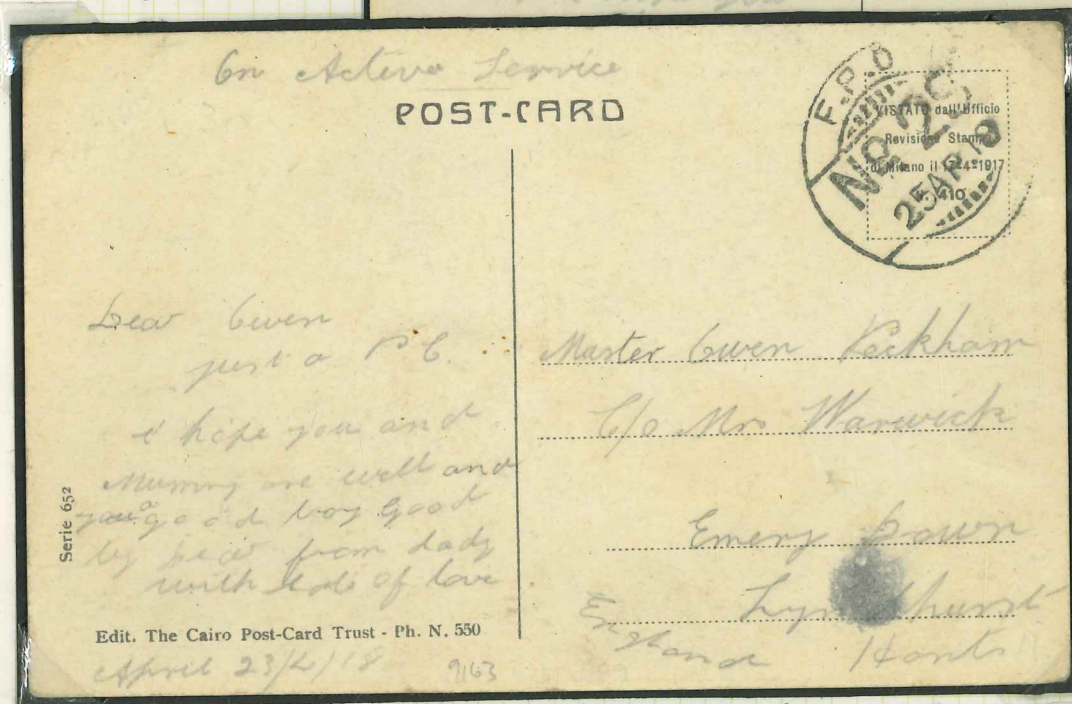 On Active Service
POST-CARD
F.P.O
No
25 AP 18
VISTATO dall'Ufficio
Revisione Stampa
di Milano il 17-4-1917
410
Dear Gwen
just a P C.
I hope you and
Mummy are well and
you a good boy Good
by Dear from dady
with lots of love
Serie 652
Edit. The Cairo Post-Card Trust - Ph. N. 550
April 23/4/18
9163
Master Gwen Peckham
C/o Mrs Warwick
Emery Down
Lyndhurst
England Hants